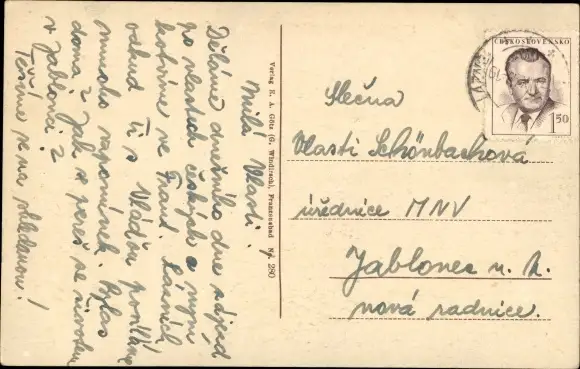 Milá Vlasti!
Děláme dnešního dne zájezd
po vlastech českých a nyní
kotvíme ve Frant. Lázních
odkud Ti s Vláďou posíláme
mnoho vzpomínek. Bylas
doma? Jak se pereš se životem
v Jablonci?
Těšíme se na shledanou!
Verlag E. A. Götz (G. Windirsch), Franzensbad Nr. 280
ČESKOSLOVENSKO
1.50
Slečna
Vlasti Schönbachová
úřednice MNV
Jablonec n. N.
nová radnice.